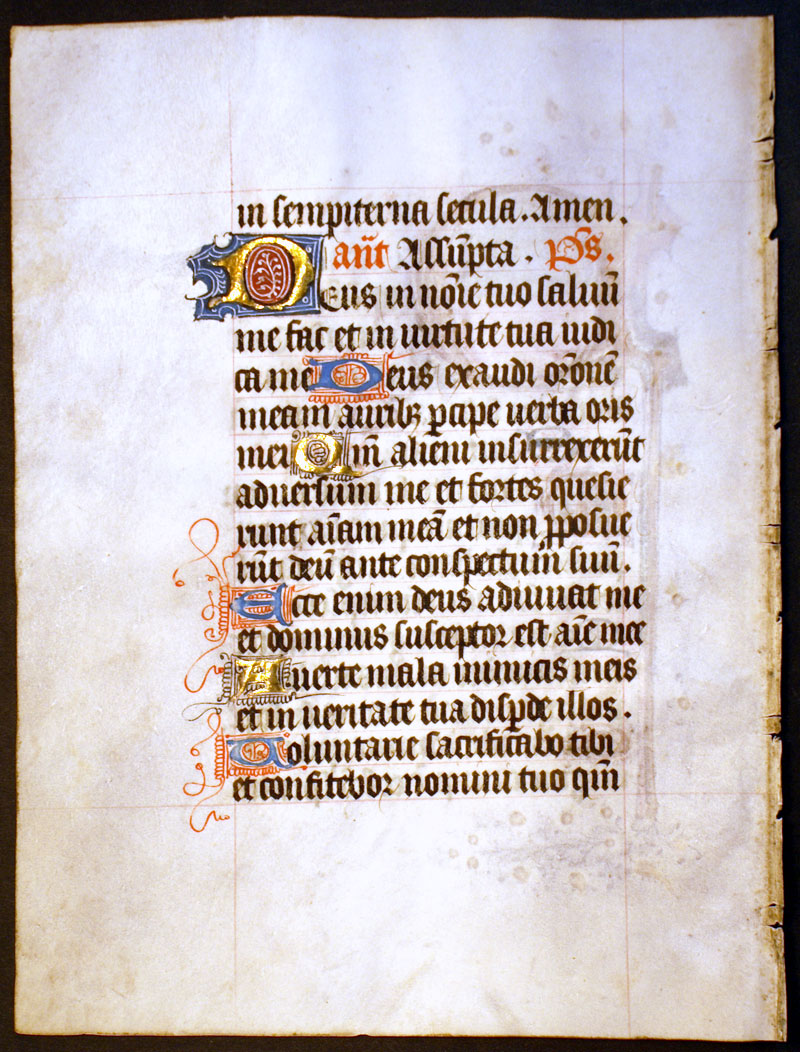 in sempiterna secula. Amen.
añt Assūpta. Ps.
Deus in noīe tuo saluū
me fac et in uirtute tua iudi
ca me Deus exaudi orōnē
meam auribꝫ ꝑcipe uerba oris
mei Qm̄ alieni insurrexerūt
aduersum me et fortes quesie
runt aīam meā et non ꝓposue
rūt deū ante conspectum suū.
Ecce enim deus adiuuat me
et dominus susceptor est aīe mee
Auerte mala inimicis meis
et in ueritate tua dispde illos.
Uoluntarie sacrificabo tibi
et confitebor nomini tuo qm̄